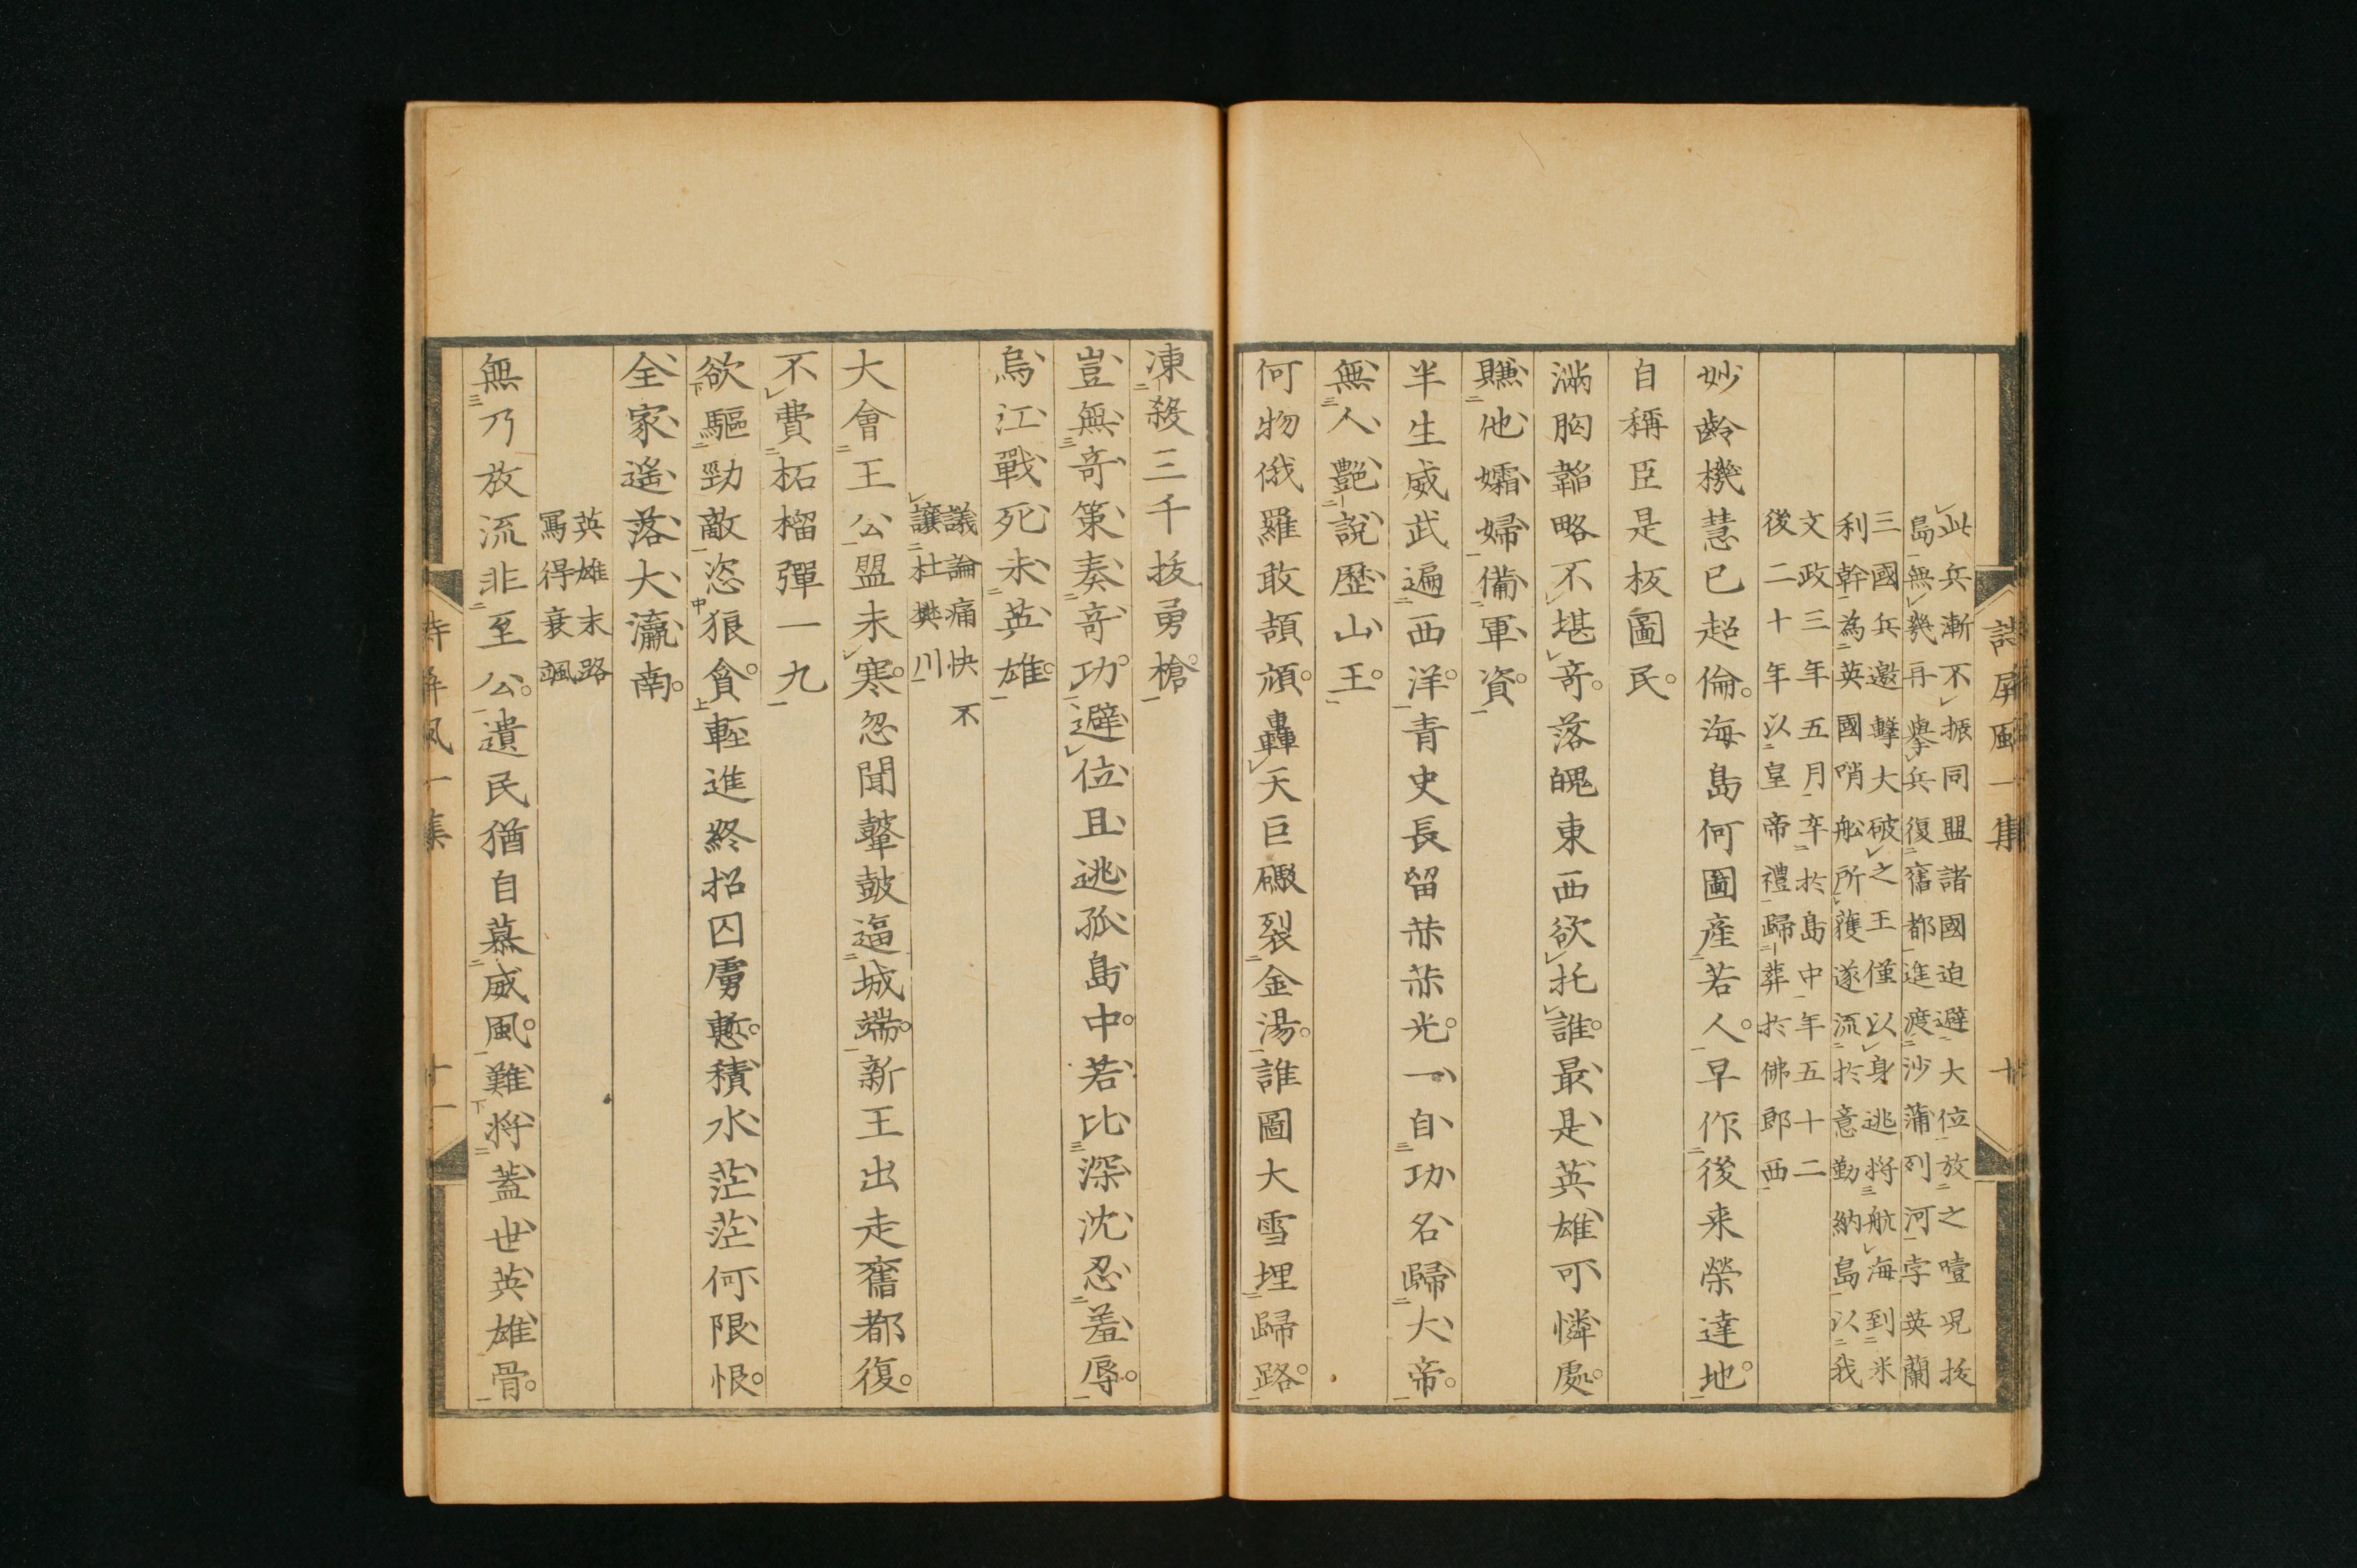 詩屏風一集
十
此兵漸不振同盟諸國迫避大位放之噎児抜
島無幾再擧兵復舊都進渡沙蒲列河字英蘭
三國兵邀擊大破之王僅以身逃将航海到米
利幹為英國哨舩所獲遂流於意勤納島以我
文政三年五月卒於島中年五十二
後二十年以皇帝禮歸葬於佛郎西
妙齡機慧已超倫海島何圖産若人早作後来榮達地
自稱臣是板圖民
滿胸韜略不堪竒落魄東西欲托誰最是英雄可憐處
賺他孀婦備軍資
半生威武遍西洋青史長留赫赫光一自功名歸大帝
無人艶說歴山王
何物俄羅敢頡頏轟天巨礮裂金湯誰圖大雪埋歸路
凍殺三千抜勇槍
豈無竒策奏竒功避位且逃孤島中若比深沈忍羞辱
烏江戰死未英雄
議論痛快不
讓杜樊川
大會王公盟未寒忽聞鼙鼓逼城端新王出走舊都復
不費柘榴彈一丸
欲驅勁敵恣狼貪輕進終招囚虜慙積水茫茫何限恨
全家遙落大瀛南
英雄末路
寫得衰颯
無乃放流非至公遺民猶自慕威風難将蓋世英雄骨
詩屏風一集
十一